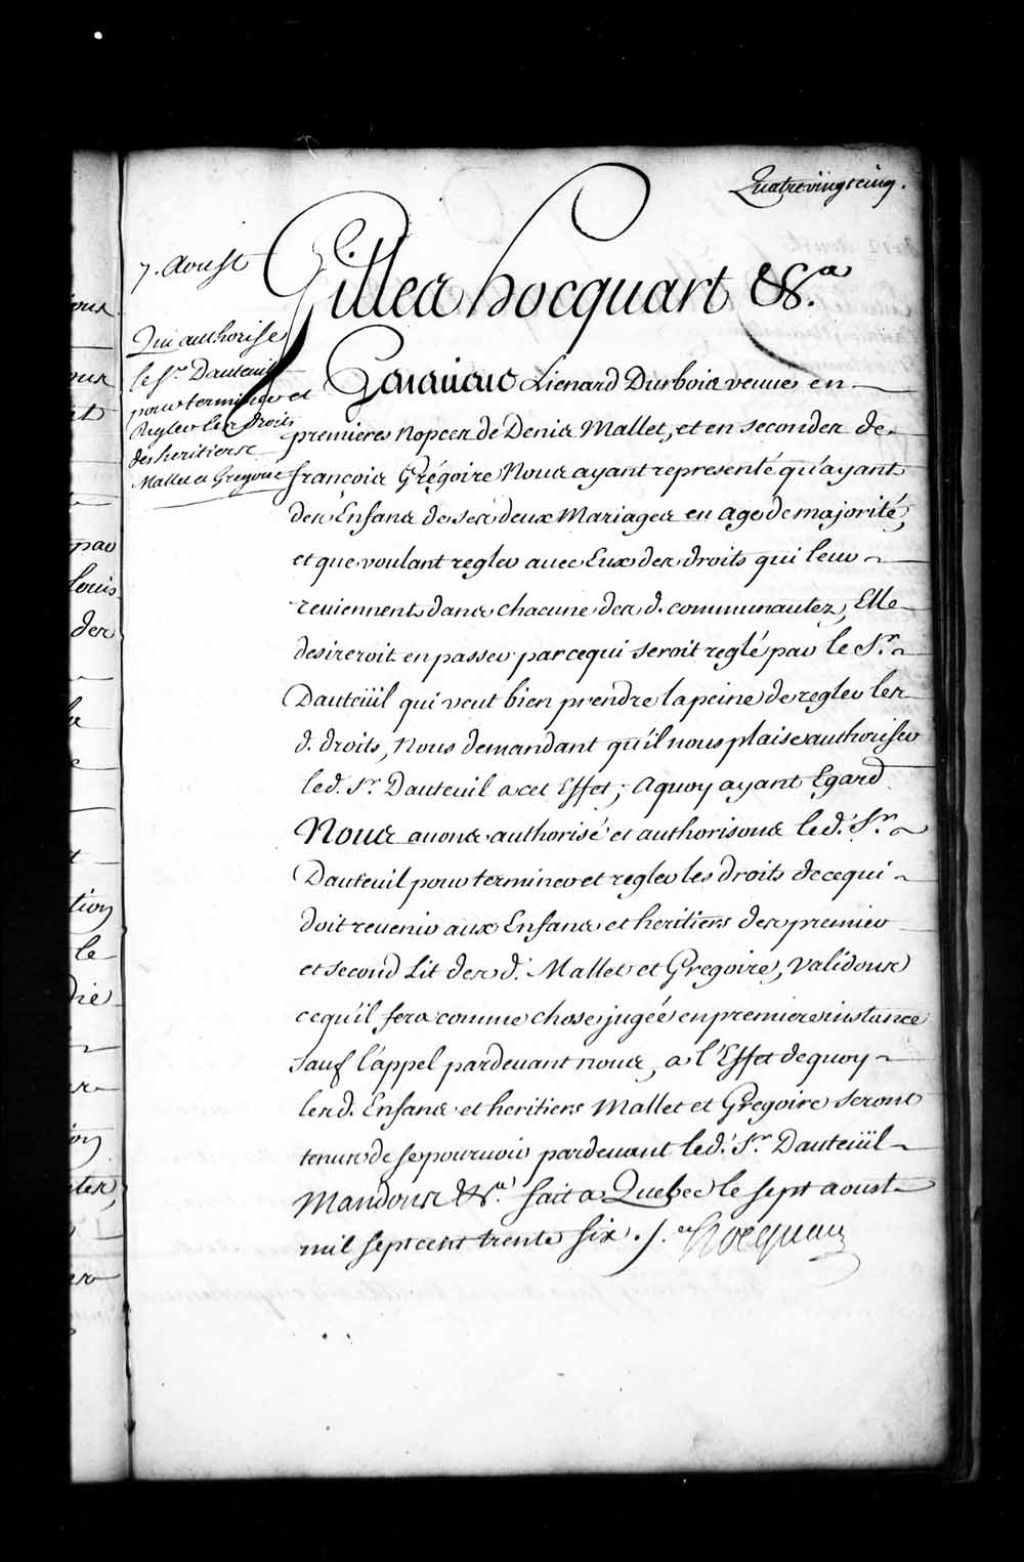 Quatrevingt cinq.
7. Aoust
Gilles hocquart &c.a
Qui authorise
le Sr. Dauteuil
pour terminer et
Regler les droits
des heritiers
Mallet et Gregoire
Genevieve Lienard Durbois veuve en
premieres Nopces de Denis Mallet, et en secondes de
francois Grégoire Nous ayant representé qu'ayant
des Enfans de ses deux Mariages en age de majorité,
et que voulant regler avec Eux des droits qui leur
reviennent dans chacune des d. communautez, Elle
desireroit en passer par ce qui seroit reglé par le Sr.
Dauteüil qui veut bien prendre la peine de regler les
d. droits, Nous demandant qu'il nous plaise authoriser
led. Sr. Dauteuil a cet Effet; a quoy ayant Egard
Nous avons authorisé et authorisons led. Sr.
Dauteuil pour terminer et regler les droits de ce qui
doit revenir aux Enfans et heritiers des premier
et second Lit des d. Mallet et Gregoire, validons
ce qu'il fera comme chose jugée en premiere instance
sauf l'appel pardevant nous, a l'Effet de quoy
les d. Enfans et heritiers Mallet et Gregoire seront
tenus de se pourvoir pardevant led. Sr. Dauteüil
Mandons &c.a fait a Quebec le sept aoust
mil sept cent trente six. /. Hocquart